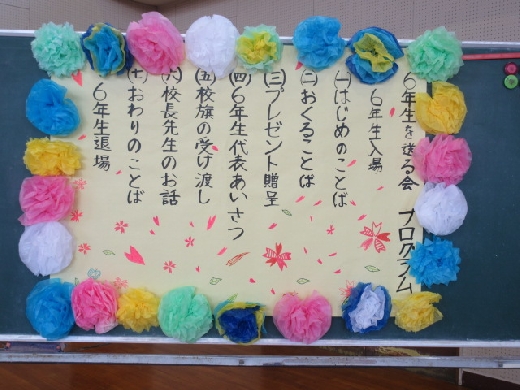 6年生を送る会 プログラム
6年生入場
(一)はじめのことば
(二)おくることば
(三)プレゼント贈呈
(四)6年生代表あいさつ
(五)校旗の受け渡し
(六)校長先生のお話
(七)おわりのことば
6年生退場